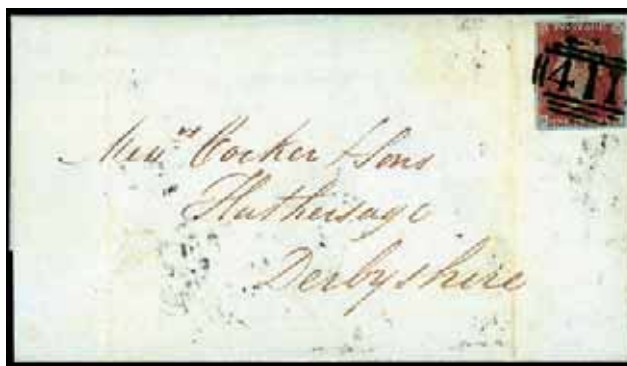 411
Mess.rs Cocker & Sons
Hathersage
Derbyshire